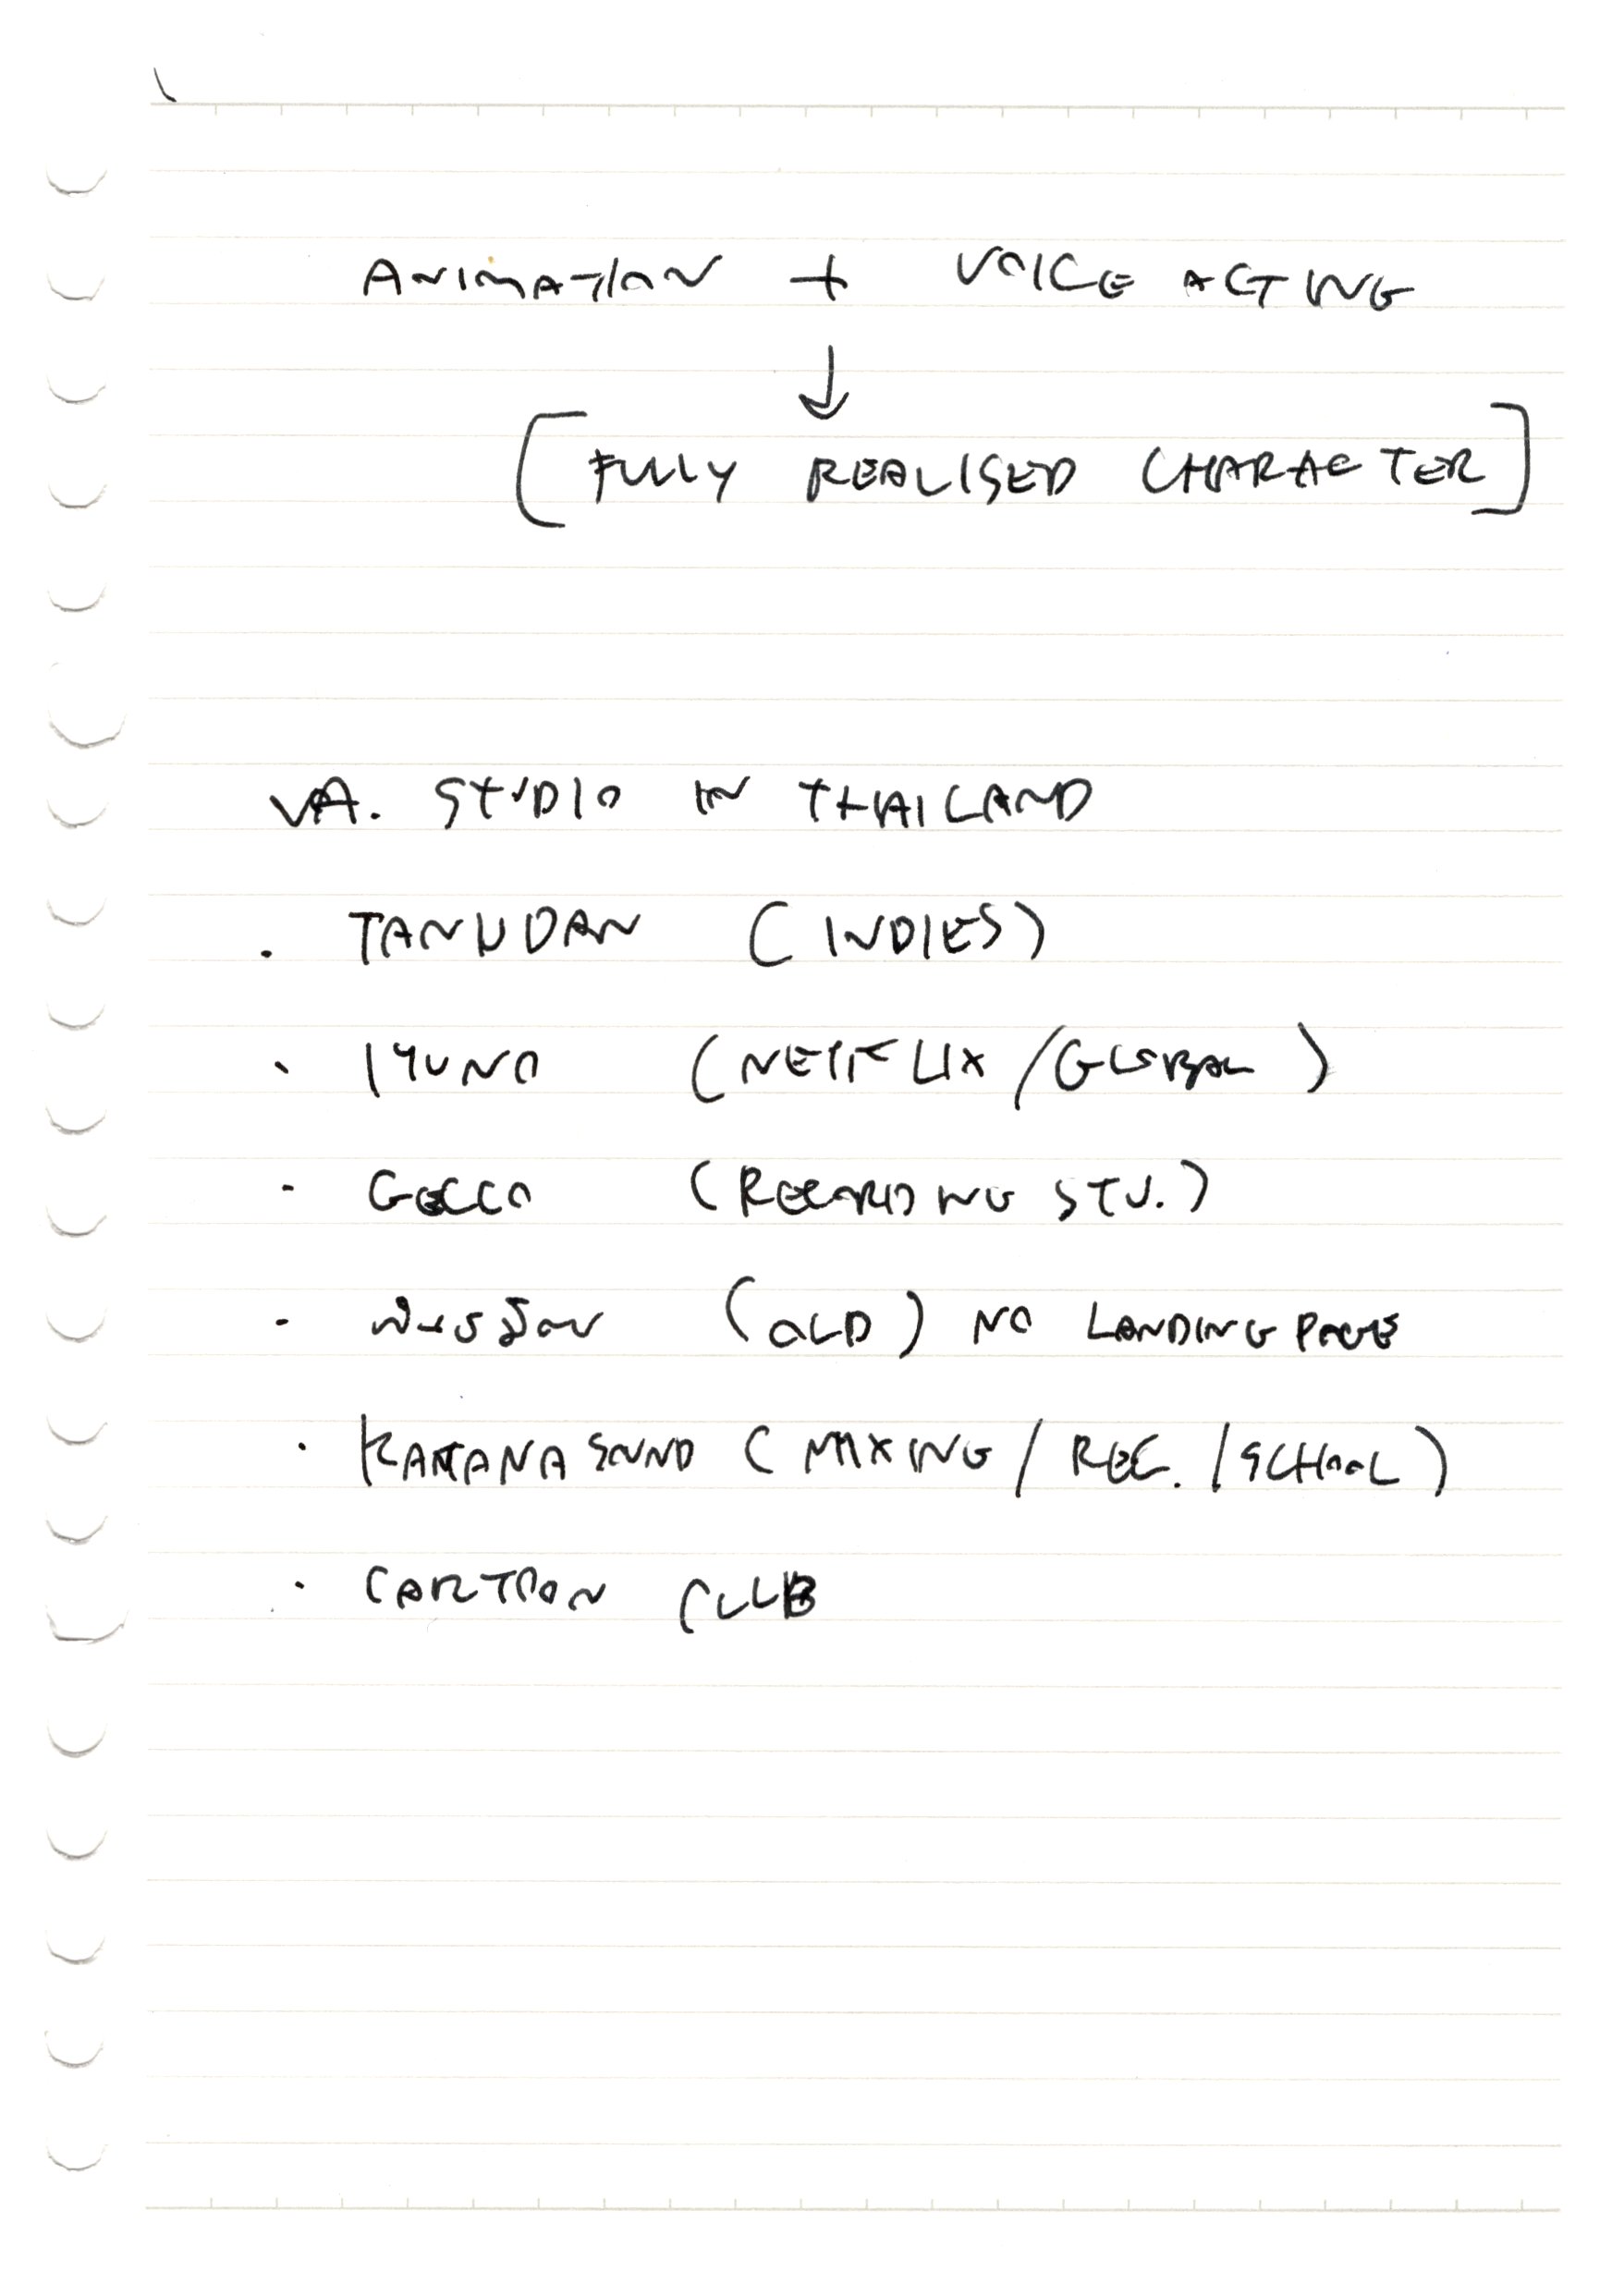 ANIMATION + VOICE ACTING
↓
[FULLY REALISED CHARACTER]
VA. STUDIO IN THAILAND
. TANUDAN (INDIES)
. IYUNO (NETFLIX/GLOBAL)
. GECCO (RECORDING STU.)
. พันธมิตร (OLD) NO LANDING PAGE
. KANTANA SOUND (MIXING/REC./SCHOOL)
. CARTOON CLUB